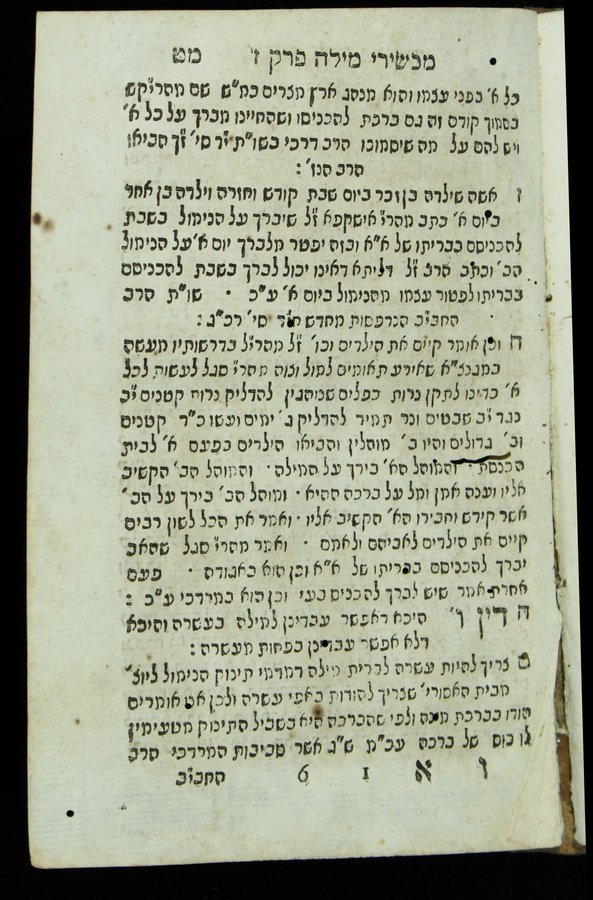 מכשירי מילה פרק ז' מט
כל א' בפני עצמו והוא מנהג ארץ מצרים כמ"ש שם מהריק"ש
בסמוך קודם זה גם ברכת להכניסו ושהחיינו מברך על כל א'
ויש להם על מה שיסמוכו הרב דרכי בשו"ת י"ד סי' ז"ך הביאו
הרב הנז' :
ז אשה שילדה בן זכר ביום שבת קודש וחזרה וילדה בן אחר
ביום א' כתב מהר"י אישקפא ז"ל שיברך על הנימול בשבת
להכניסם בבריתו של א"א ובזה יפטר מלברך יום א' על הנימול
הב' וכתב הרב ז"ל דליתא דאינו יכול לברך בשבת להכניסם
בבריתו לפטור עצמו מהנימול ביום א' ע"כ שו"ת הרב
החבי"ב הנדפסות מחדש חי"ד סי' רכ"ג :
ח וכן אומר קיים את הילדים וכו' ז"ל מהרי"ל בדרשותיו מעשה
במגנצ"א שאירע תאומים למול וצוה מהר"י סגל לעשות לכל
א' כדינו לתקן נרות כפלים שנוהגין להדליק נרות קטנים י"ב
כנגד י"ב שבטים ונר תמיד להדליק ג' ימים ועשו כ"ד קטנים
וב' גדולים והיו ב' מוהלין והביאו הילדים בפעם א' לבית
הכנסת והמוהל הא' בירך על המילה והמוהל הב' הקשיב
אליו וענה אמן ומל על ברכה ההיא ומוהל הב' בירך על הב'
אשר קידש וחבירו הא' הקשיב אליו ואמר את הכל לשון רבים
קיים את הילדים לאביהם ולאמם ואמר מהר"י סגל שהאב
יברך להכניסם בבריתו של א"א וכן הוא באגודה פעם
אחרת אמר שיש לברך להכניסם בעי' וכן הוא במרדכי ע"כ :
ה דין ו' היכא דאפשר עבדינן למילה בעשרה והיכא
דלא אפשר עבדינן בפחות מעשרה :
ט צריך להיות עשרה לברית מילה דמדמי תינוק הנימול ליוצ'
מבית האסורי' שצריך להודות באפי עשרה ולכן אנו אומרים
הודו בברכת מזונה ולפי שהברכה היא בשביל התינוק מטעימין
לו כוס של ברכה עכ"מ ש"ג אשר סביבות המרדכי הרב
ז א 1 6 החבי"ב